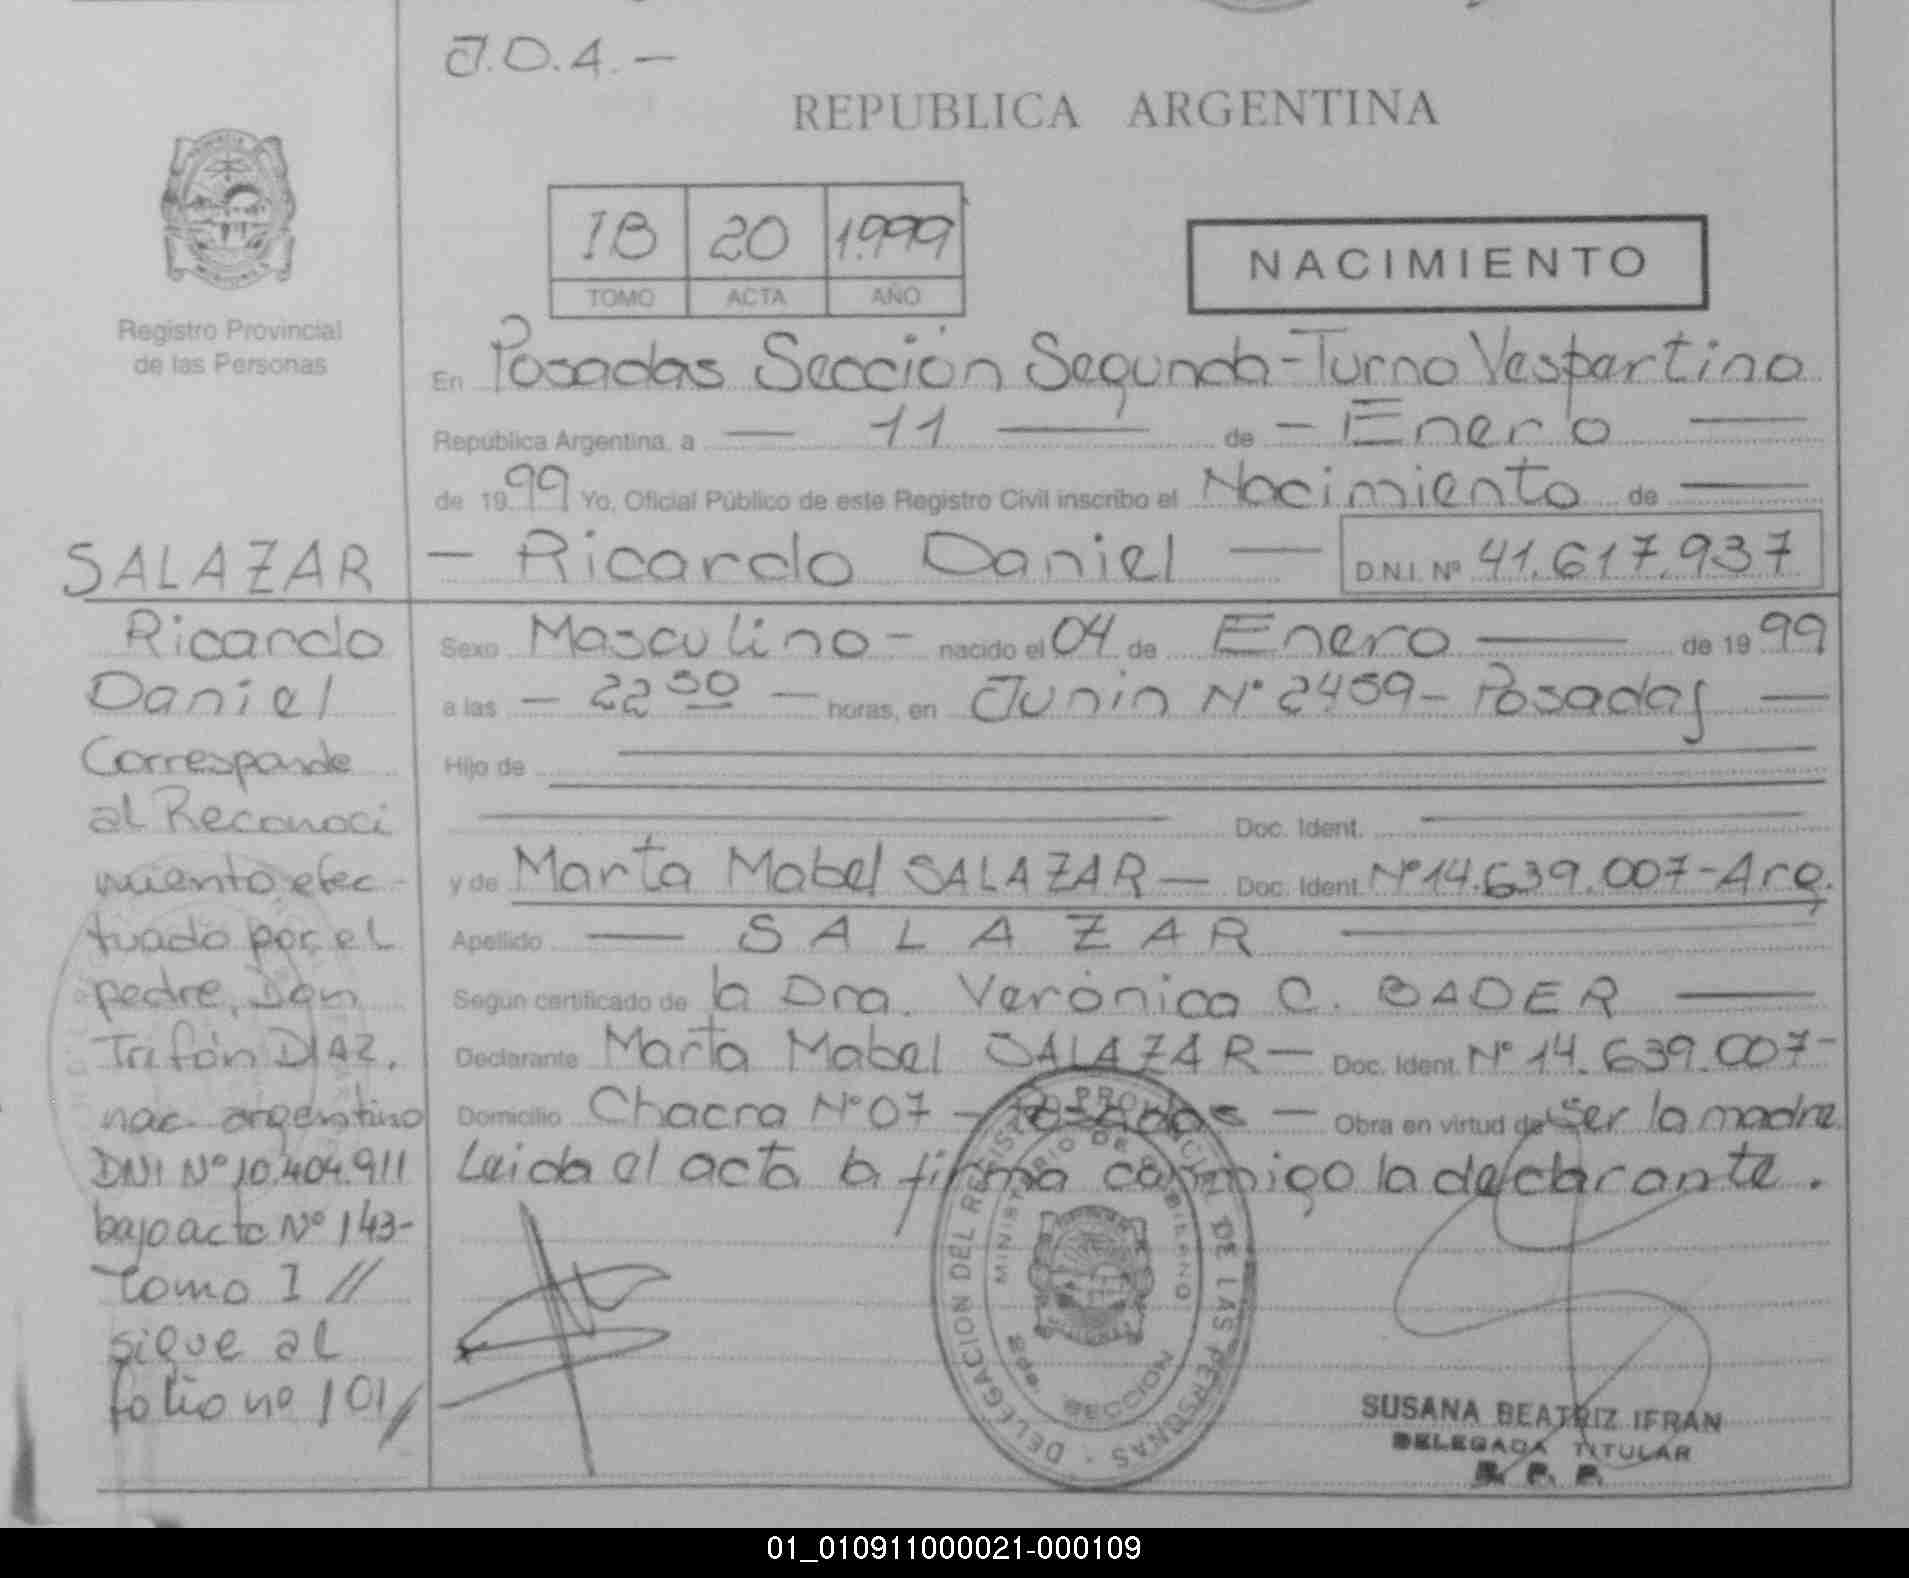 J.O.A.-
REPUBLICA ARGENTINA
1B 20 1.999
TOMO ACTA AÑO
NACIMIENTO
Registro Provincial
de las Personas
En Posadas Sección Segunda-Turno Vespartino
República Argentina, a — 11 — de - Enero —
de 1999 Yo, Oficial Público de este Registro Civil inscribo el Nacimiento de —
— Ricardo Daniel — D.N.I. Nº 41.617.937
Sexo Masculino - nacido el 04 de Enero — de 1999
a las — 22 — horas, en Junin Nº 2459- Posadas —
Hijo de
Doc. Ident.
y de Marta Mabel SALAZAR — Doc. Ident. Nº 14.639.007-Arg.
Apellido — SALAZAR —
Según certificado de la Dra. Verónica C. BADER —
Declarante Marta Mabel SALAZAR — Doc. Ident. Nº 14.639.007-
Domicilio Chacra Nº 07 - Posadas — Obra en virtud de Ser la madre
Leida el acta la firma conmigo la declarante.
SALAZAR
Ricardo
Daniel
Corresponde
al Reconoci
miento efec-
tuado por el
padre, Don
Trifón DIAZ,
nac. argentino
DNI Nº 10.404.911
bajo acta Nº 143-
Tomo I //
sigue al
folio nº 101/
DELEGACION DEL REGISTRO PROVINCIAL DE LAS PERSONAS
MINISTERIO DE GOBIERNO
SECCION
SUSANA BEATRIZ IFRAN
DELEGADA TITULAR
R. P. P.
01_010911000021-000109